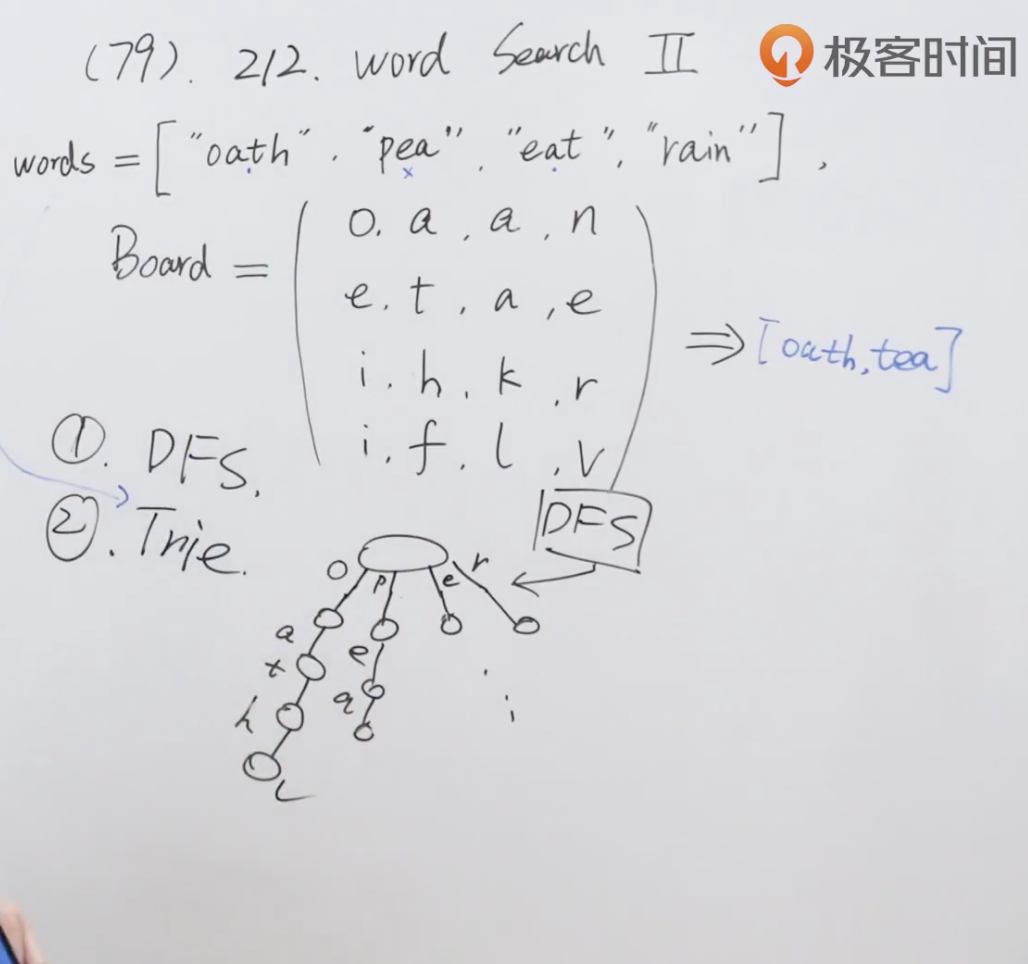 (79). 212. word Search II
极客时间
words = ["oath", "pea", "eat", "rain"],
Board =
o, a, a, n
e, t, a, e
i, h, k, r
i, f, l, v
⇒ [oath, tea]
①. DFS.
②. Trie.
DFS
o p e r
a e
t a
h